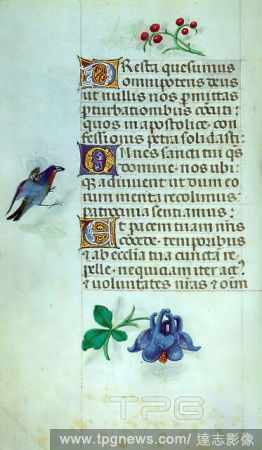 Presta quesumus
omnipotens deus
ut nullis nos pmittas
pturbationibus concuti:
quos in apostolice con
fessionis petra solidasti:
Omnes sancti tui qs
domine nos ubi
q adiuvent ut dum eo
rum merita recolimus
patrocinia sentiamus:
Et pacem tuam nris
temporibus
ab ecclia tua cuncta re
pelle nequiciam iter act
z voluntates nras z oim
TPG
www.tpgnews.com/ 達志影像